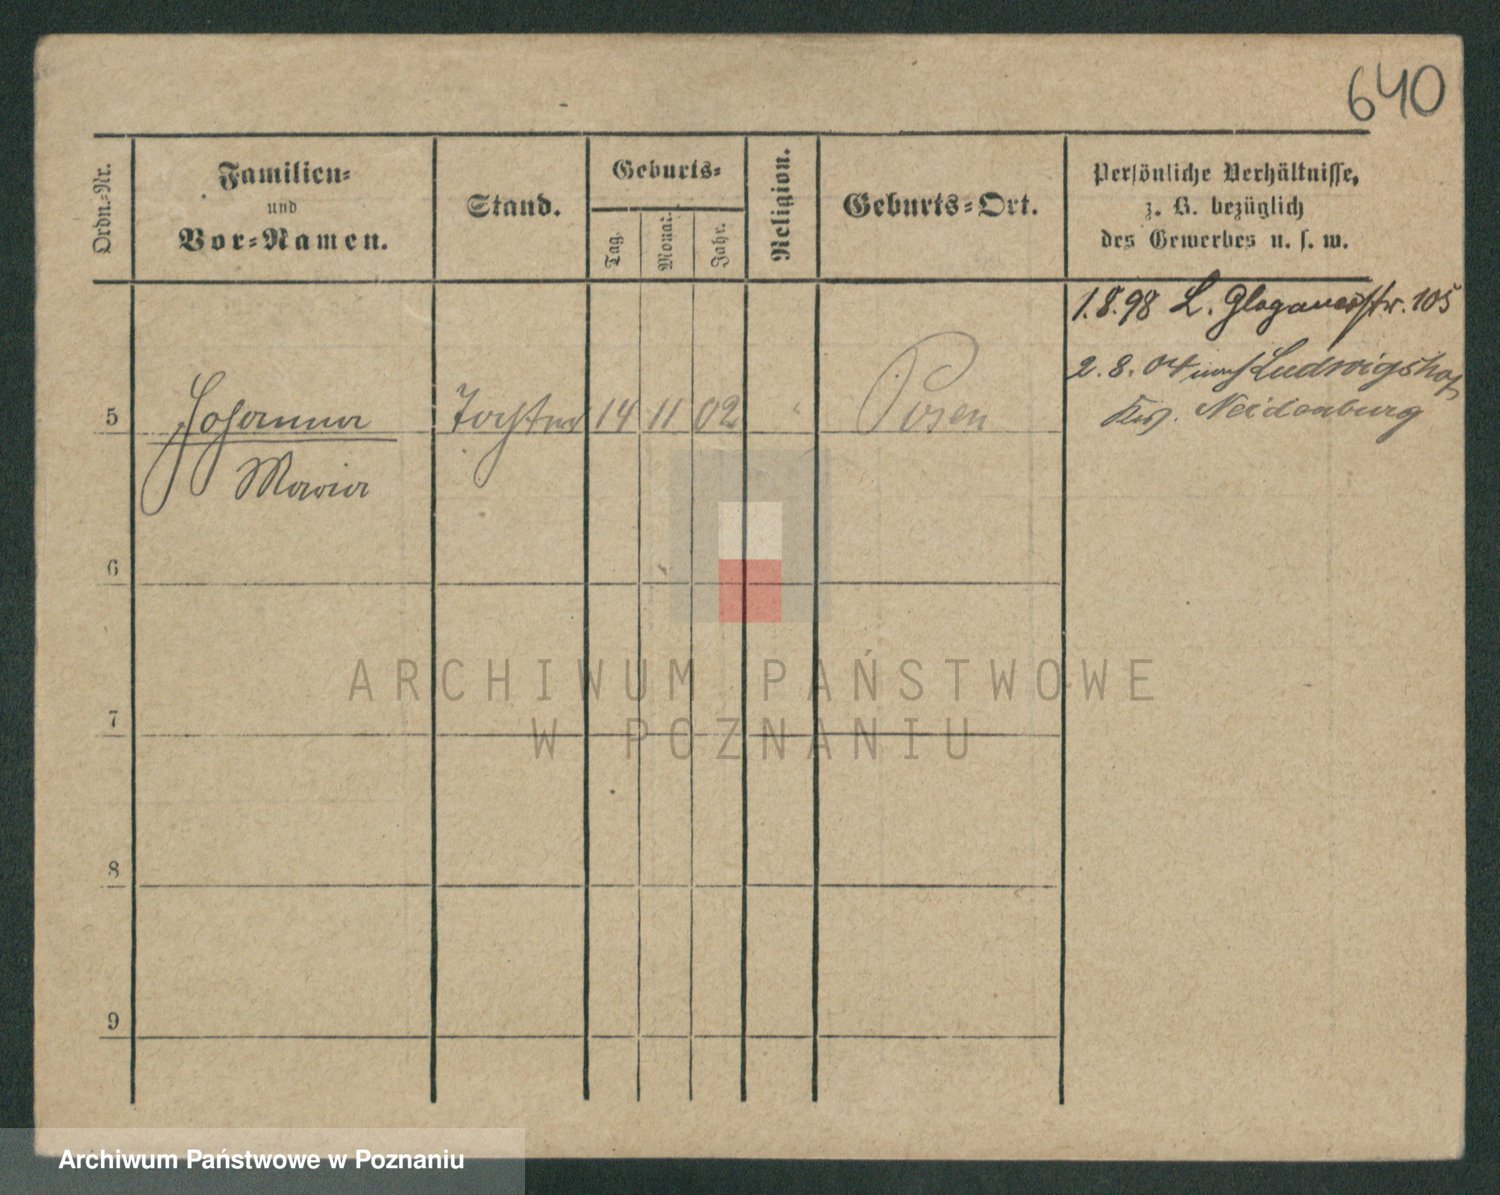 640
Ordn.-Nr.
Familien-
und
Vor-Namen.
Stand.
Geburts-
Tag.
Monat.
Jahr.
Religion.
Geburts-Ort.
Persönliche Verhältnisse,
z. B. bezüglich
des Gewerbes u. s. w.
1.8.98 L. Glogauerstr. 105
2. 8. 04 nach Ludwigshof
Krs. Neidenburg
5 Johanna Tochter 14 11 02 " Posen
Maria
6
7
8
9
ARCHIWUM PAŃSTWOWE
W POZNANIU
Archiwum Państwowe w Poznaniu